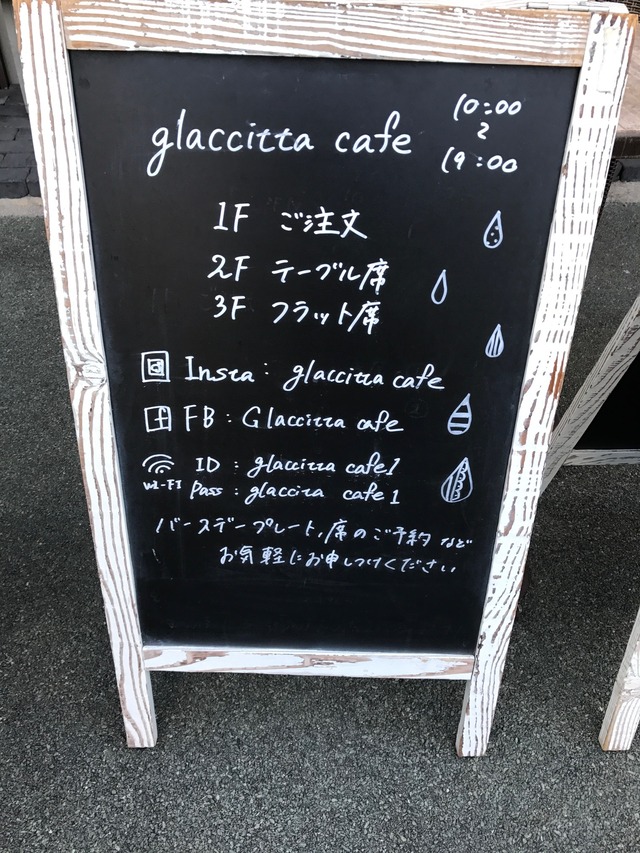 glaccitta cafe
10:00
~
19:00
1F ご注文
2F テーブル席
3F フラット席
Insta: glaccitta cafe
FB: Glaccitta cafe
ID: glaccitta cafe1
Wi-FI Pass: glaccitta cafe1
バースデープレート、席のご予約など
お気軽にお申しつけください